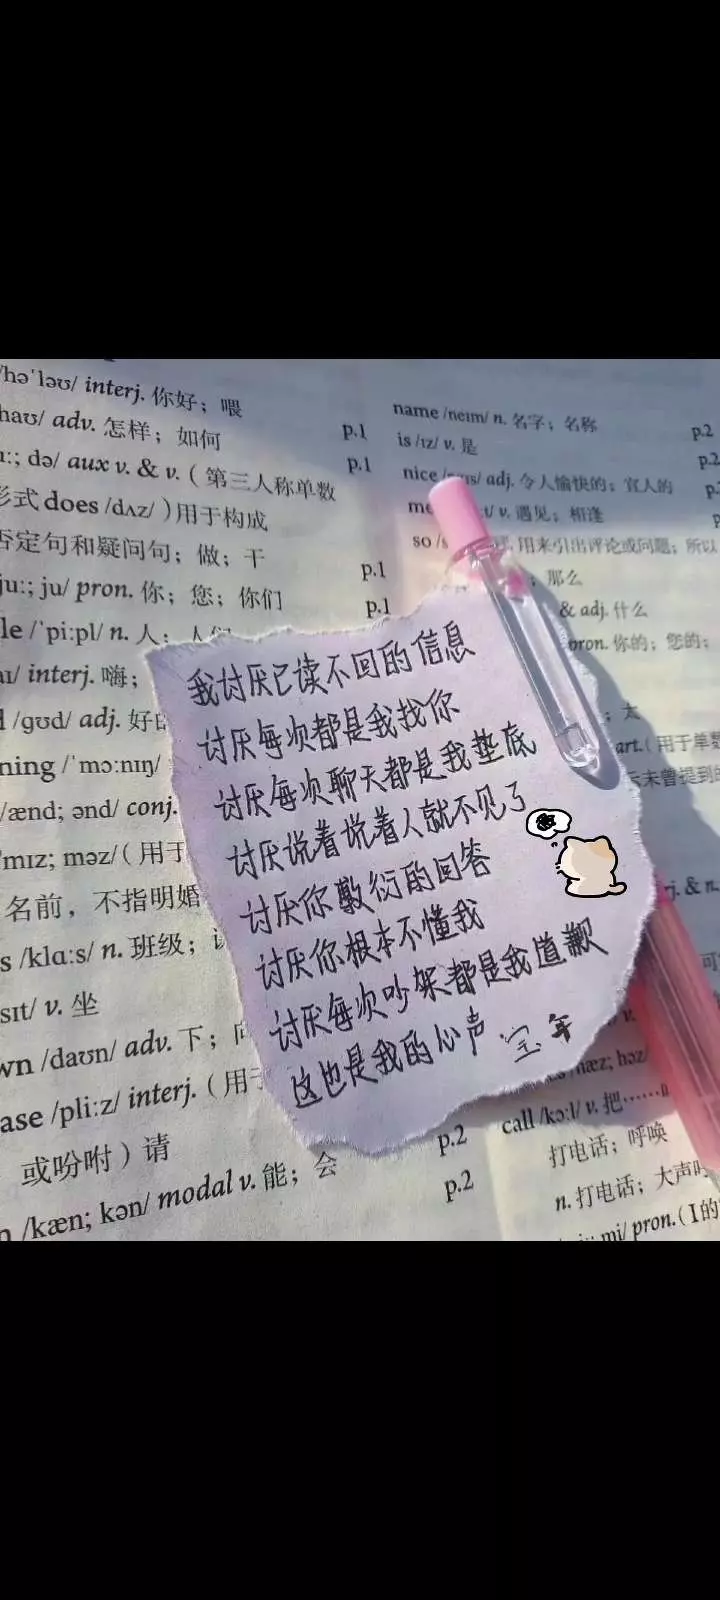 /həˈləʊ/ interj. 你好；喂
haʊ/ adv. 怎样；如何
p.1
ː; də/ aux v. & v. ( 第三人称单数
p.1
形式 does /dʌz/ )用于构成
否定句和疑问句；做；干
p.1
juː; ju/ pron. 你；您；你们
p.1
le /ˈpiːpl/ n. 人；人们
aɪ/ interj. 嗨；
/ɡʊd/ adj. 好的
ning /ˈmɔːnɪŋ/
/ænd; ənd/ conj.
mɪz; məz/( 用于
名前，不指明婚
s /klɑːs/ n. 班级；
sɪt/ v. 坐
wn /daʊn/ adv. 下；向
ase /pliːz/ interj. ( 用于
或吩咐 ) 请
p.2
n /kæn; kən/ modal v. 能；会
p.2
name /neɪm/ n. 名字；名称
p.2
is /ɪz/ v. 是
p.2
nice /naɪs/ adj. 令人愉快的；宜人的
v. 遇见；相逢
so 用来引出评论或问题；所以
；那么
& adj. 什么
pron. 你的；您的；
；太
art.( 用于单数
未曾提到的
我讨厌已读不回的信息
讨厌每次都是我找你
讨厌每次聊天都是我垫底
讨厌说着说着人就不见了
讨厌你敷衍的回答
讨厌你根本不懂我
讨厌每次吵架都是我道歉
这也是我的心声
j. & n.
hæz; həz/
call /kɔːl/ v. 把……
打电话；呼唤
n. 打电话；大声
mi/ pron.( I的